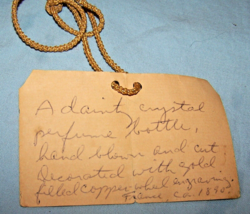 A dainty crystal
perfume bottle,
hand blown and cut.
Decorated with gold
filled copper wheel engraving.
France, ca. 1830s